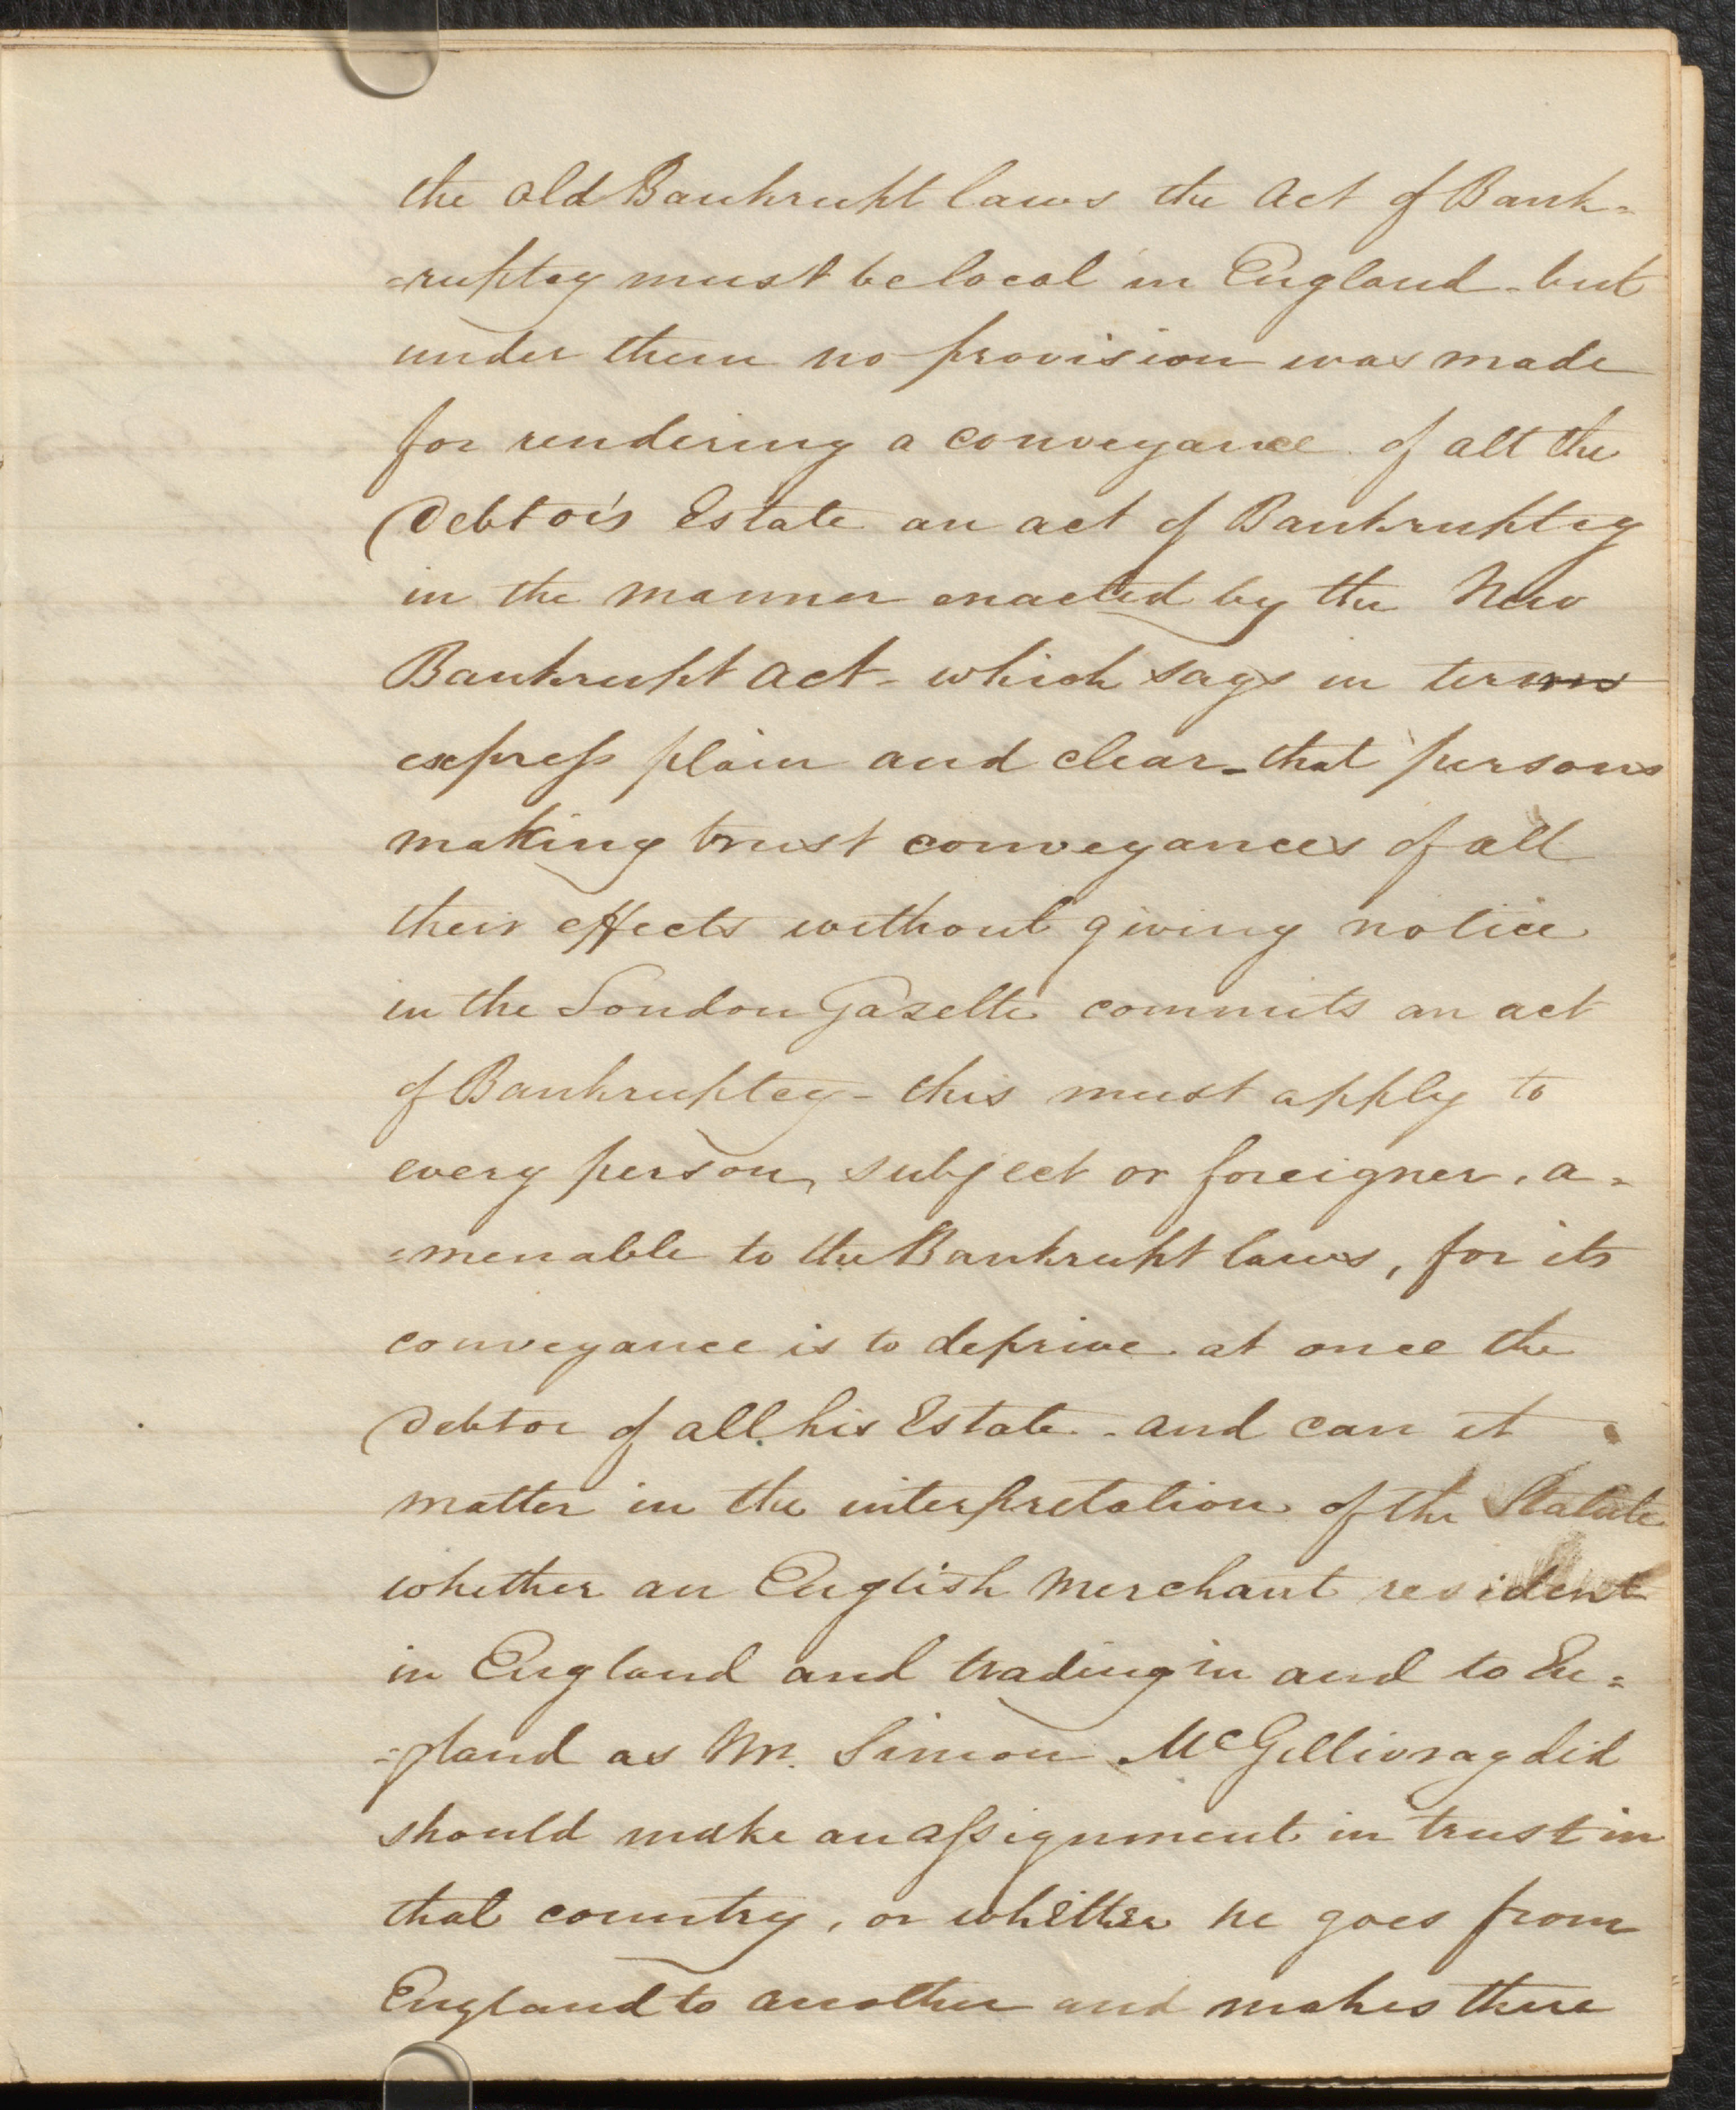 the Old Bankrupt laws the Act of Bank=
=ruptcy must be local in England - but
under them no provision was made
for rendering a conveyance of all the
Debtor's Estate an act of Bankruptcy
in the manner enacted by the New
Bankrupt Act - which says in terms
express plain and clear - that persons
making trust conveyances of all
their effects without giving notice
in the London Gazette commits an act
of Bankruptcy - this must apply to
every person, subject or foreigner, a=
=menable to the Bankrupt laws, for its
conveyance is to deprive at once the
Debtor of all his Estate - and can it
matter in the interpretation of the Statute
whether an English Merchant resident
in England and trading in and to En=
=gland as Mr. Simon McGillivray did
should make an assignment in trust in
that country, or whether he goes from
England to another and makes there